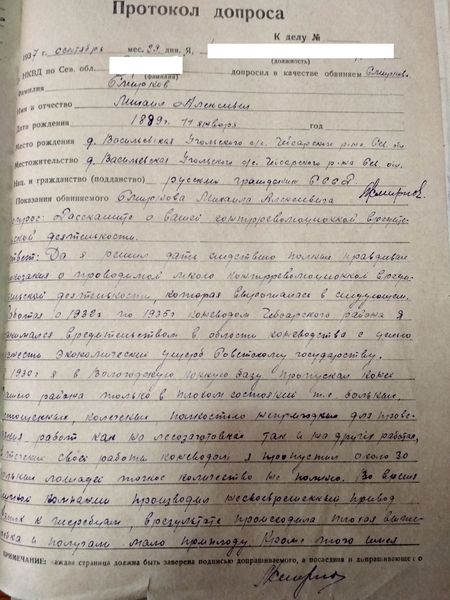 Протокол допроса
К делу №
1937 г. сентябрь мес. 29 дня. Я,
(должность)
НКВД по Сев. обл. допросил в качестве обвиняем Смирнов.
(фамилия)
Фамилия Смирнов
Имя и отчество Михаил Алексеевич
Дата рождения 1889 г. 11 января год
Место рождения д. Васильевская Угольского с/с. Чебсарского р-на Св. обл.
Местожительство д. Васильевская Угольского с/с. Чебсарского р-на Св. обл.
Нац. и гражданство (подданство) русский гражданин СССР.
Показания обвиняемого Смирнова Михаила Алексеевича Смирнов
Расскажите о вашей контрреволюционной
деятельности.
Да я решил дать следствию полные правдивые
показания о проводимой мною контрреволюционной
деятельности, которая выразилась в следующем.
Работая с по 1935 г коневодом Чебсарского района я
занимался вредительством в области коневодства с целью
нанести ущерб Советскому государству.
1930 г я в Вологодскую конную базу пропускал коней
района только в плохом состоянии т.е. больных,
истощенных, полностью непригодных для
работ как на лесозаготовках так и на других работах,
своей работы коневодом я пропустил около 30
лошадей точное количество не помню. Во время
кампании производил несвоевременный привод
к жеребцам, в результате происходила плохая
и получали мало приплоду. Кроме того имея
ПРИМЕЧАНИЕ: каждая страница должна быть заверена подписью допрашиваемого, а последняя и допрашивающего
Смирнов